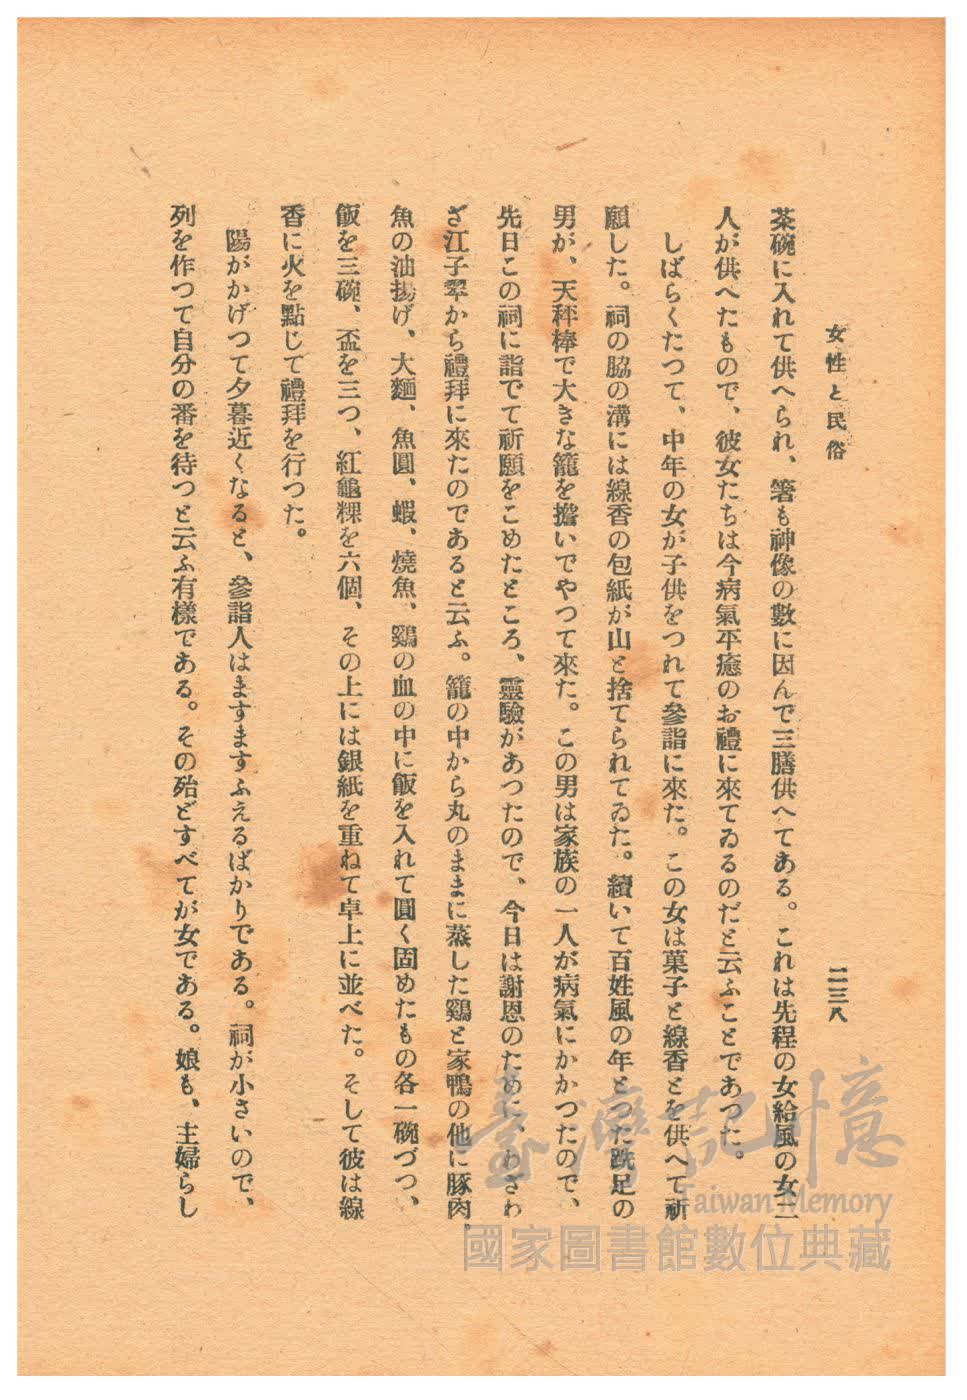 女性と民俗
二三八
茶碗に入れて供へられ、箸も神像の數に因んで三膳供へてある。これは先程の女給風の女二
人が供へたもので、彼女たちは今病氣平癒のお禮に來てゐるのだと云ふことであつた。
しばらくたつて、中年の女が子供をつれて參詣に來た。この女は菓子と線香とを供へて祈
願した。祠の脇の溝には線香の包紙が山と捨てられてゐた。續いて百姓風の年とつた跣足の
男が、天秤棒で大きな籠を擔いでやつて來た。この男は家族の一人が病氣にかかつたので、
先日この祠に詣でて祈願をこめたところ、靈驗があつたので、今日は謝恩のために、わざわ
ざ江子翠から禮拜に來たのであると云ふ。籠の中から丸のままに蒸した鷄と家鴨の他に豚肉、
魚の油揚げ、大麵、魚圓、蝦、燒魚、鷄の血の中に飯を入れて圓く固めたもの各一碗づつ、
飯を三碗、盃を三つ、紅龜粿を六個、その上には銀紙を重ねて卓上に並べた。そして彼は線
香に火を點じて禮拜を行つた。
陽がかげつて夕暮近くなると、參詣人はますますふえるばかりである。祠が小さいので、
列を作つて自分の番を待つと云ふ有樣である。その殆どすべてが女である。娘も、主婦らし
臺灣記憶
Taiwan Memory
國家圖書館數位典藏